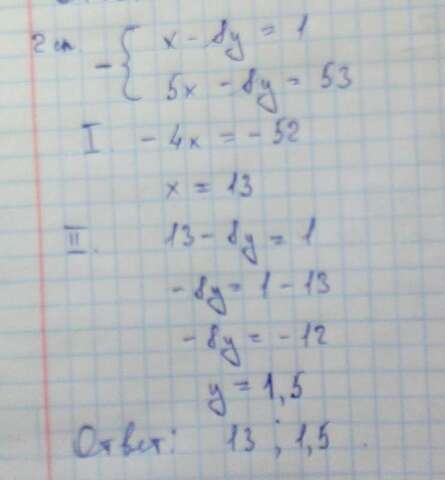 2 сп. x - 8y = 1
- { 5x - 8y = 53
I. - 4x = - 52
x = 13
II. 13 - 8y = 1
- 8y = 1 - 13
- 8y = - 12
y = 1,5
Ответ: 13 ; 1,5 .